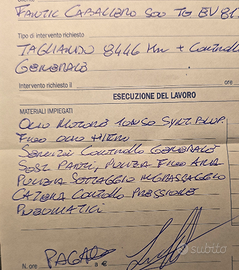 FANTIC CABALLERO 500 TG EV 81
Tipo di intervento richiesto
TAGLIANDO 8446 Km + CONTROLLO
GENERALE
Intervento richiesto il
ore
ESECUZIONE DEL LAVORO
MATERIALI IMPIEGATI
OLIO MOTORE 10W50 SYNT BLUP
FILTRO OLIO MOTORE
SERVIZIO CONTROLLO GENERALE
SOST. PARTI, PULIZIA FILTRO ARIA
PULIZIA SOTTAGGIO INGRASSAGGIO
CATENA CONTROLLO PRESSIONE
PNEUMATICI
N. ore
PAGATO
a €
subito